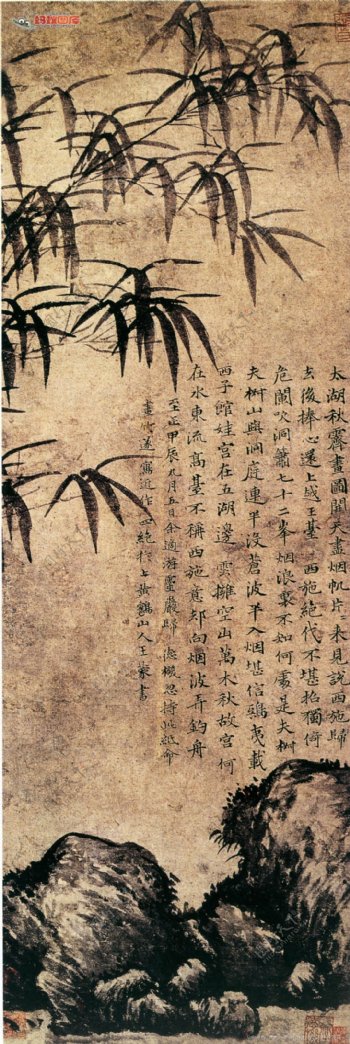 太湖秋霽畫圖開天盡烟帆片〻來見說西施歸
去後捧心還上越王臺 西施絕代不堪招獨倚
危闌吹洞簫七十二峯烟浪裏不如何處是夫椒
夫椒山與洞庭連半沒蒼波半入烟堪信鴟夷載
西子館娃宮在五湖邊 雲擁空山萬木秋故宮何
在水東流高臺不稱西施意却向烟波弄釣舟
至正甲辰九月五日余適游靈巖歸 德機忽持此紙命
畫竹遂寫近作四絕於上黃鶴山人王蒙書